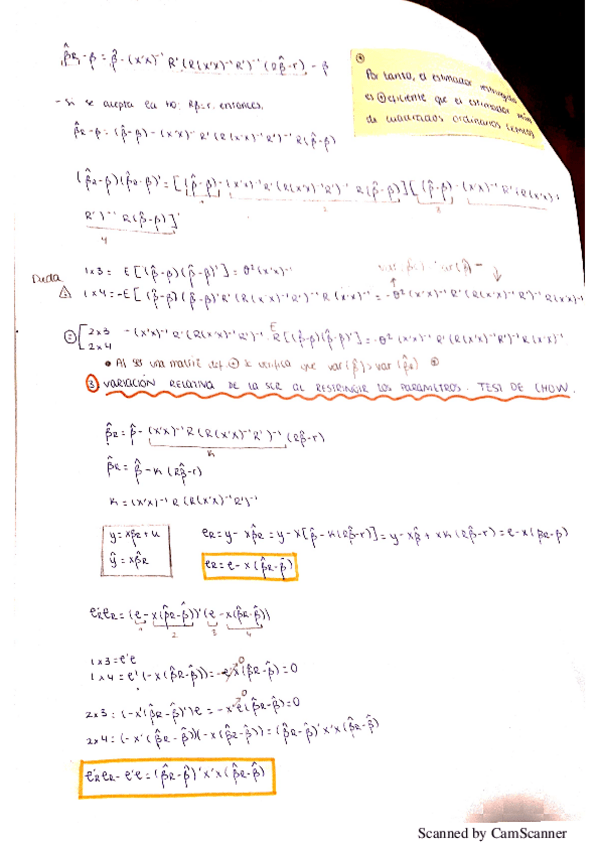 β̂R-β = β̂-(x'x)⁻¹ R'(R(x'x)⁻¹R')⁻¹ (Rβ̂-r) - β
Por tanto, el estimador restringido
es ⊕ eficiente que el estimador
de cuadrados ordinarios
- Si se acepta la H0: Rβ=r. entonces.
β̂R-β = (β̂-β) - (x'x)⁻¹ R'(R(x'x)⁻¹R')⁻¹ R(β̂-β)
(β̂R-β)(β̂R-β)' = [(β̂-β) - (x'x)⁻¹R'(R(x'x)⁻¹R')⁻¹ R(β̂-β)][(β̂-β) - (x'x)⁻¹R'(R(x'x)⁻¹
R')⁻¹ R(β̂-β)]'
4
Duda
1x3 = E[(β̂-β)(β̂-β)'] = σ²(x'x)⁻¹
1x4 = -E[(β̂-β)(β̂-β)'R'(R(x'x)⁻¹R')⁻¹R(x'x)⁻¹ = -σ²(x'x)⁻¹R'(R(x'x)⁻¹R')⁻¹R(x'x)⁻¹
2x3 -(x'x)⁻¹R'(R(x'x)⁻¹R')⁻¹ R E[(β̂-β)(β̂-β)'] = -σ²(x'x)⁻¹R'(R(x'x)⁻¹R')⁻¹R(x'x)⁻¹
2x4
• Al ser una matriz def ⊕ se verifica que var(β̂)>var(β̂R)
③ VARIACIÓN RELATIVA DE LA SCR AL RESTRINGIR LOS PARÁMETROS. TEST DE CHOW.
β̂R = β̂-(x'x)⁻¹R(R(x'x)⁻¹R')⁻¹(Rβ̂-r)
K
β̂R = β̂-K(Rβ̂-r)
K = (x'x)⁻¹R(R(x'x)⁻¹R')⁻¹
y = xβR+u
ŷ = xβ̂R
eR = y-xβ̂R = y-x[β̂-K(Rβ̂-r)] = y-xβ̂+xK(Rβ̂-r) = e-x(β̂R-β̂)
eR = e-x(β̂R-β̂)
e'ReR = (e-x(β̂R-β̂))'(e-x(β̂R-β̂))
1 2 3 4
1x3 = e'e
1x4 = e'(-x(β̂R-β̂)) = -e'x(β̂R-β̂) = 0
2x3: (-x'(β̂R-β̂)')e = -x'e(β̂R-β̂) = 0
2x4: (-x'(β̂R-β̂)(-x(β̂R-β̂)) = (β̂R-β̂)'x'x(β̂R-β̂)
e'ReR-e'e = (β̂R-β̂)'x'x(β̂R-β̂)
Scanned by CamScanner